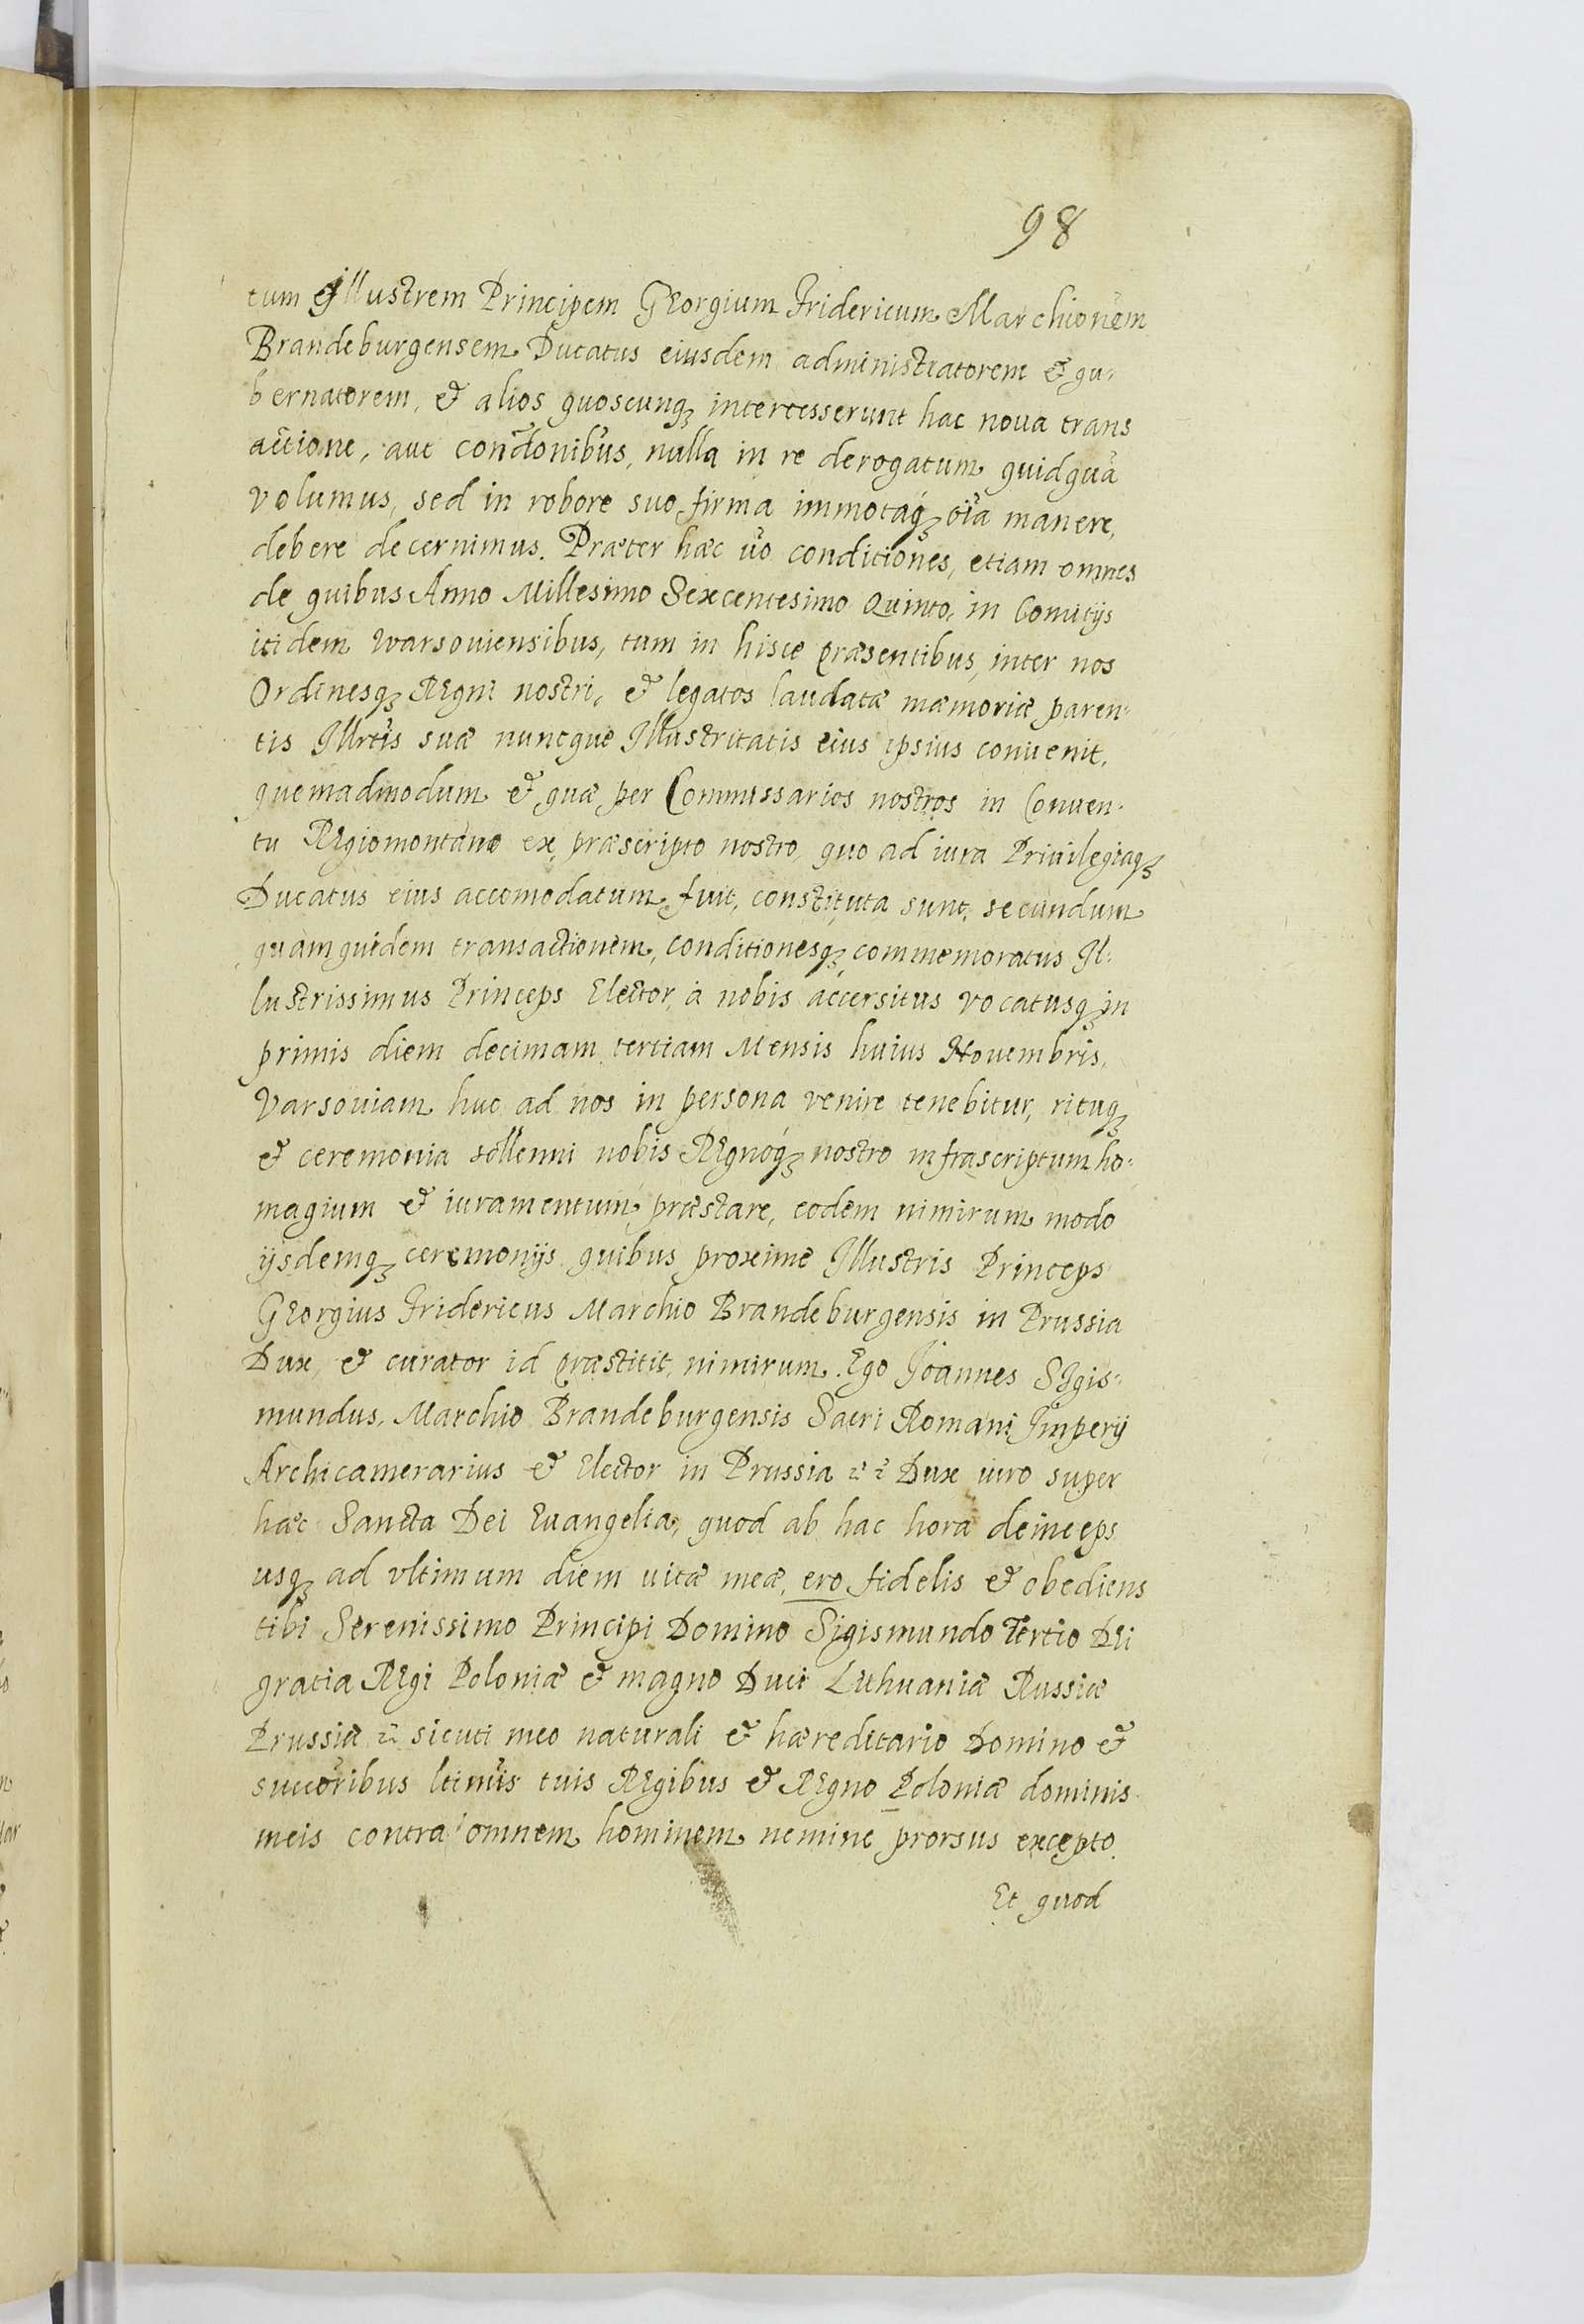 98
tum Illustrem Principem Georgium Fridericum Marchionem
Brandeburgensem Ducatus eiusdem administratorem & gu-
bernatorem, & alios quoscunq; intercesserunt hac noua trans
actione, aut condonibus, nulla in re derogatum quidquã
volumus, sed in robore suo firma immotaq; oĩa manere,
debere decernimus. Præter hæc ũo conditiones, etiam omnes
de quibus Anno Millesimo Sexcentesimo Quinto, in Comitijs
itidem Warsouiensibus, tum in hisce præsentibus, inter nos
Ordinesq; Regni nostri, & legatos laudatæ mæmoriæ paren-
tis Illrtis suæ nuncque Illustritatis eius ipsius conuenit,
quemadmodum & quæ per Commissarios nostros in Conuen-
tu Regiomontano ex præscripto nostro, quo ad iura Priuilegiaq;
Ducatus eius accomodatum fuit, constituta sunt, secundum
quam quidem transactionem, conditionesq; commemoratus Il-
lustrissimus Princeps Elector, à nobis accersitus vocatusq; in
primis diem decimam tertiam Mensis huius Nouembris,
Varsouiam huc ad nos in persona venire tenebitur, rituq;
& ceremonia sollenni nobis Regnoq; nostro infrascriptum ho-
magium & iuramentum præstare, eodem nimirum modo
ijsdemq; ceremonijs quibus proxime Illustris Princeps
Georgius Fridericus Marchio Brandeburgensis in Prussia
Dux, & curator id præstitit, nimirum. Ego Joannes Sigis-
mundus, Marchio Brandeburgensis Sacri Romani Imperij
Archicamerarius & Elector in Prussia Dux iuro super
hæc Sancta Dei Euangelia, quod ab hac hora deinceps
usq; ad vltimum diem uitæ meæ, ero fidelis & obediens
tibi Serenissimo Principi Domino Sigismundo Tertio Dei
gratia Regi Poloniæ & magno Duci Lithuaniæ Russiæ
Prussiæ sicuti meo naturali & hæreditario Domino &
succoribus ltimis tuis Regibus & Regno Poloniæ dominis
meis contra omnem hominem nemine prorsus excepto.
Et quod